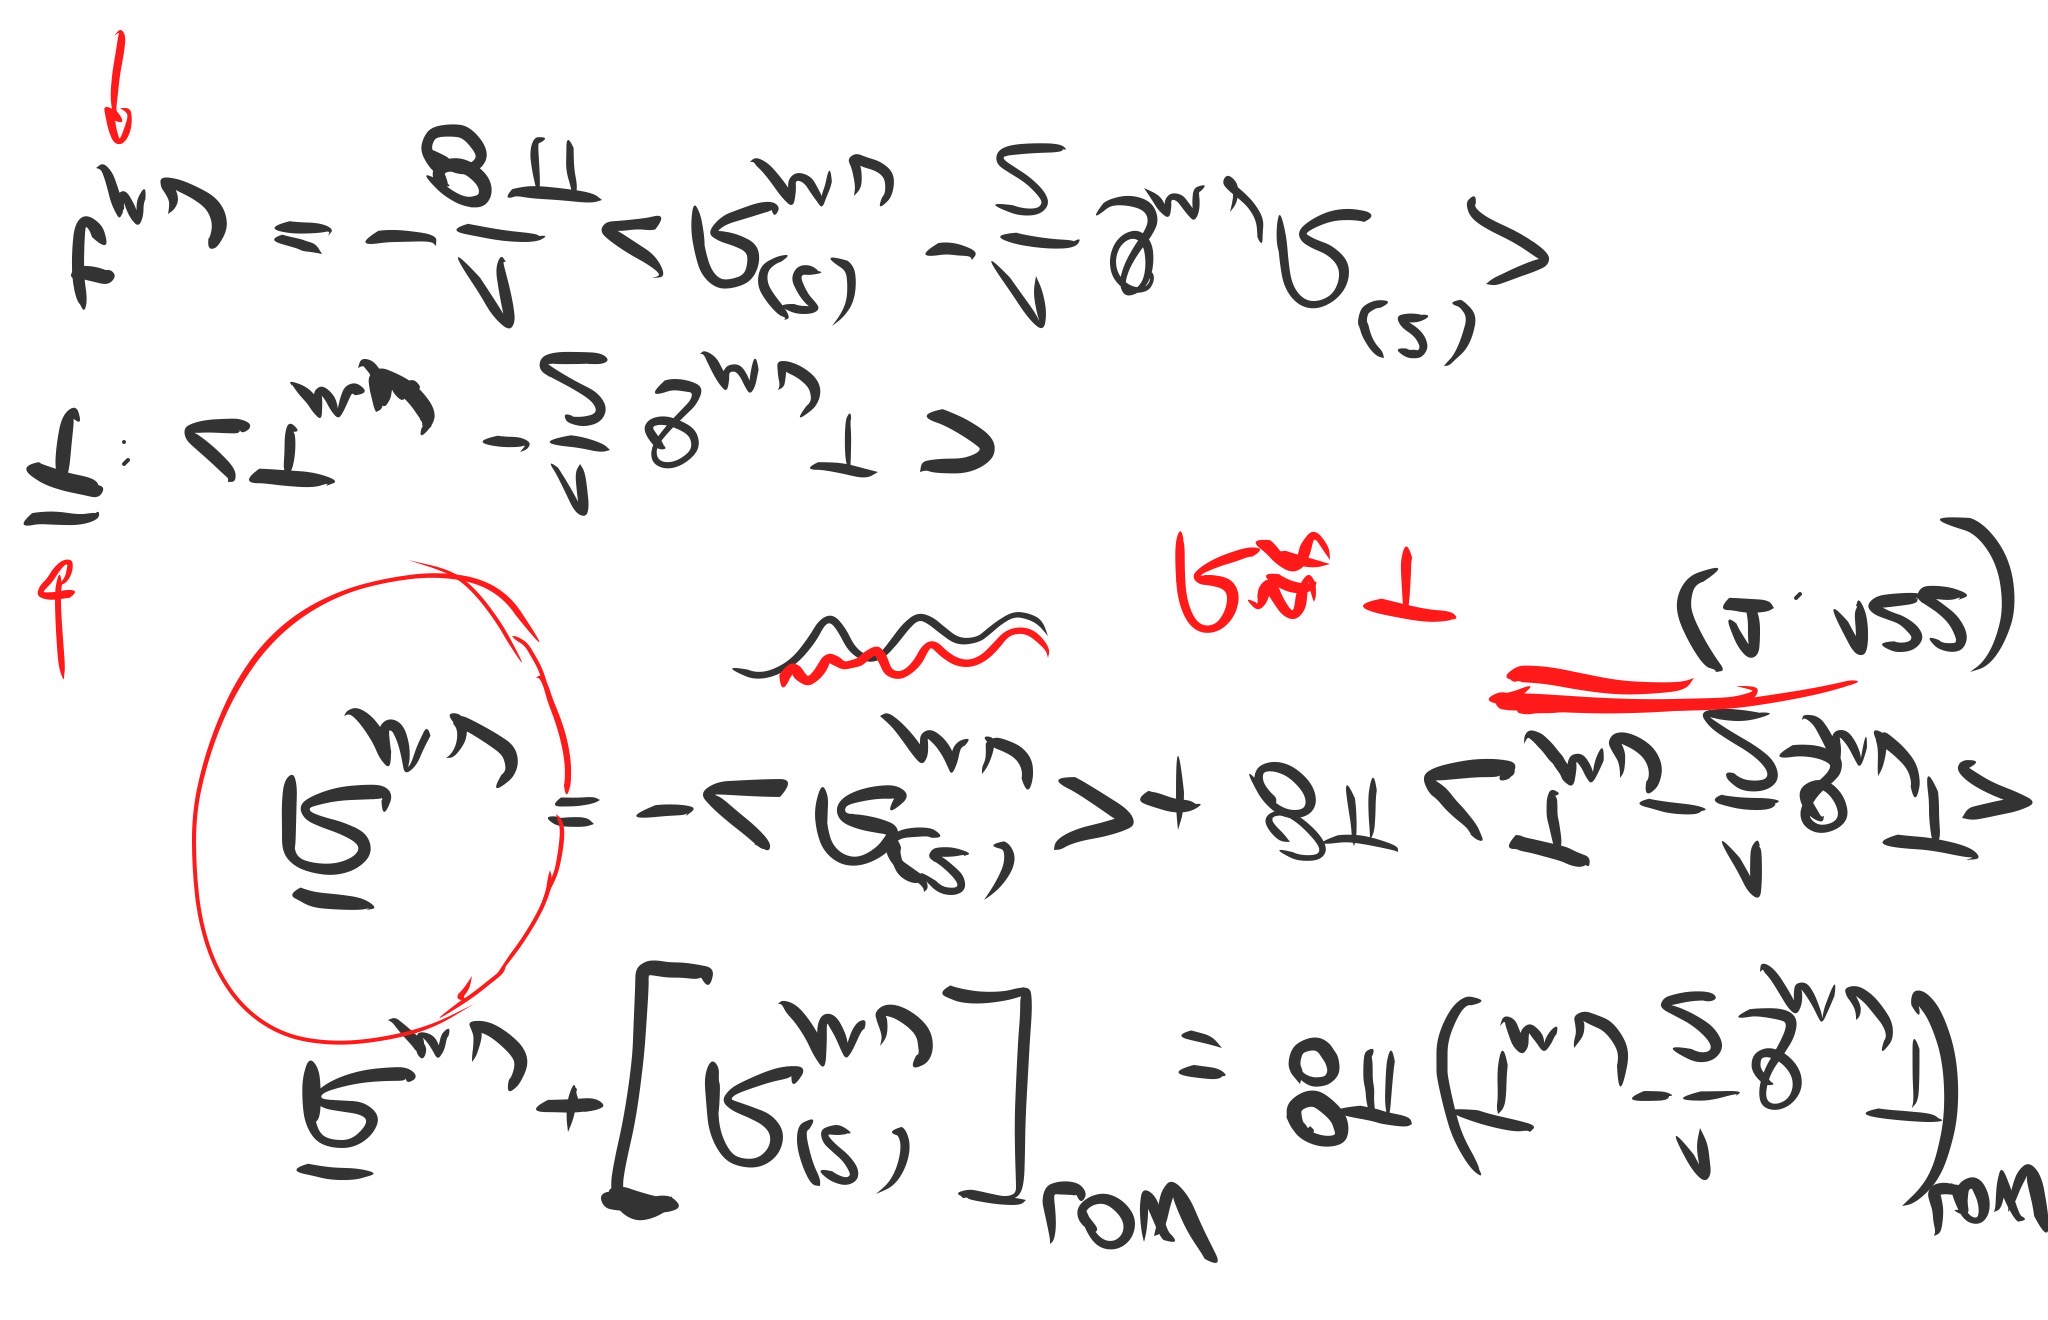 R̄_μν + [R^(2)_μν]^LOW = 8π (T_μν - 1/2 g_μν T)^LOW
R̄_μν = - <R^(2)_μν> + 8π <T_μν - 1/2 g_μν T>
(1.122)
R T
T̄ : <T_μν - 1/2 g_μν T>
t_μν = - 1/8π <R^(2)_μν - 1/2 g_μν R^(2)>